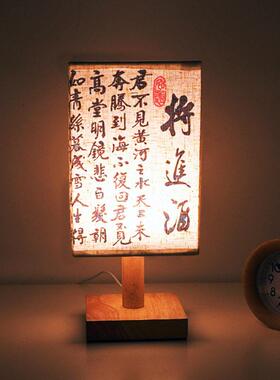 將進酒
君不見黃河之水天上来
奔騰到海不復回君不見
高堂明鏡悲白髮朝
如青絲暮成雪人生得